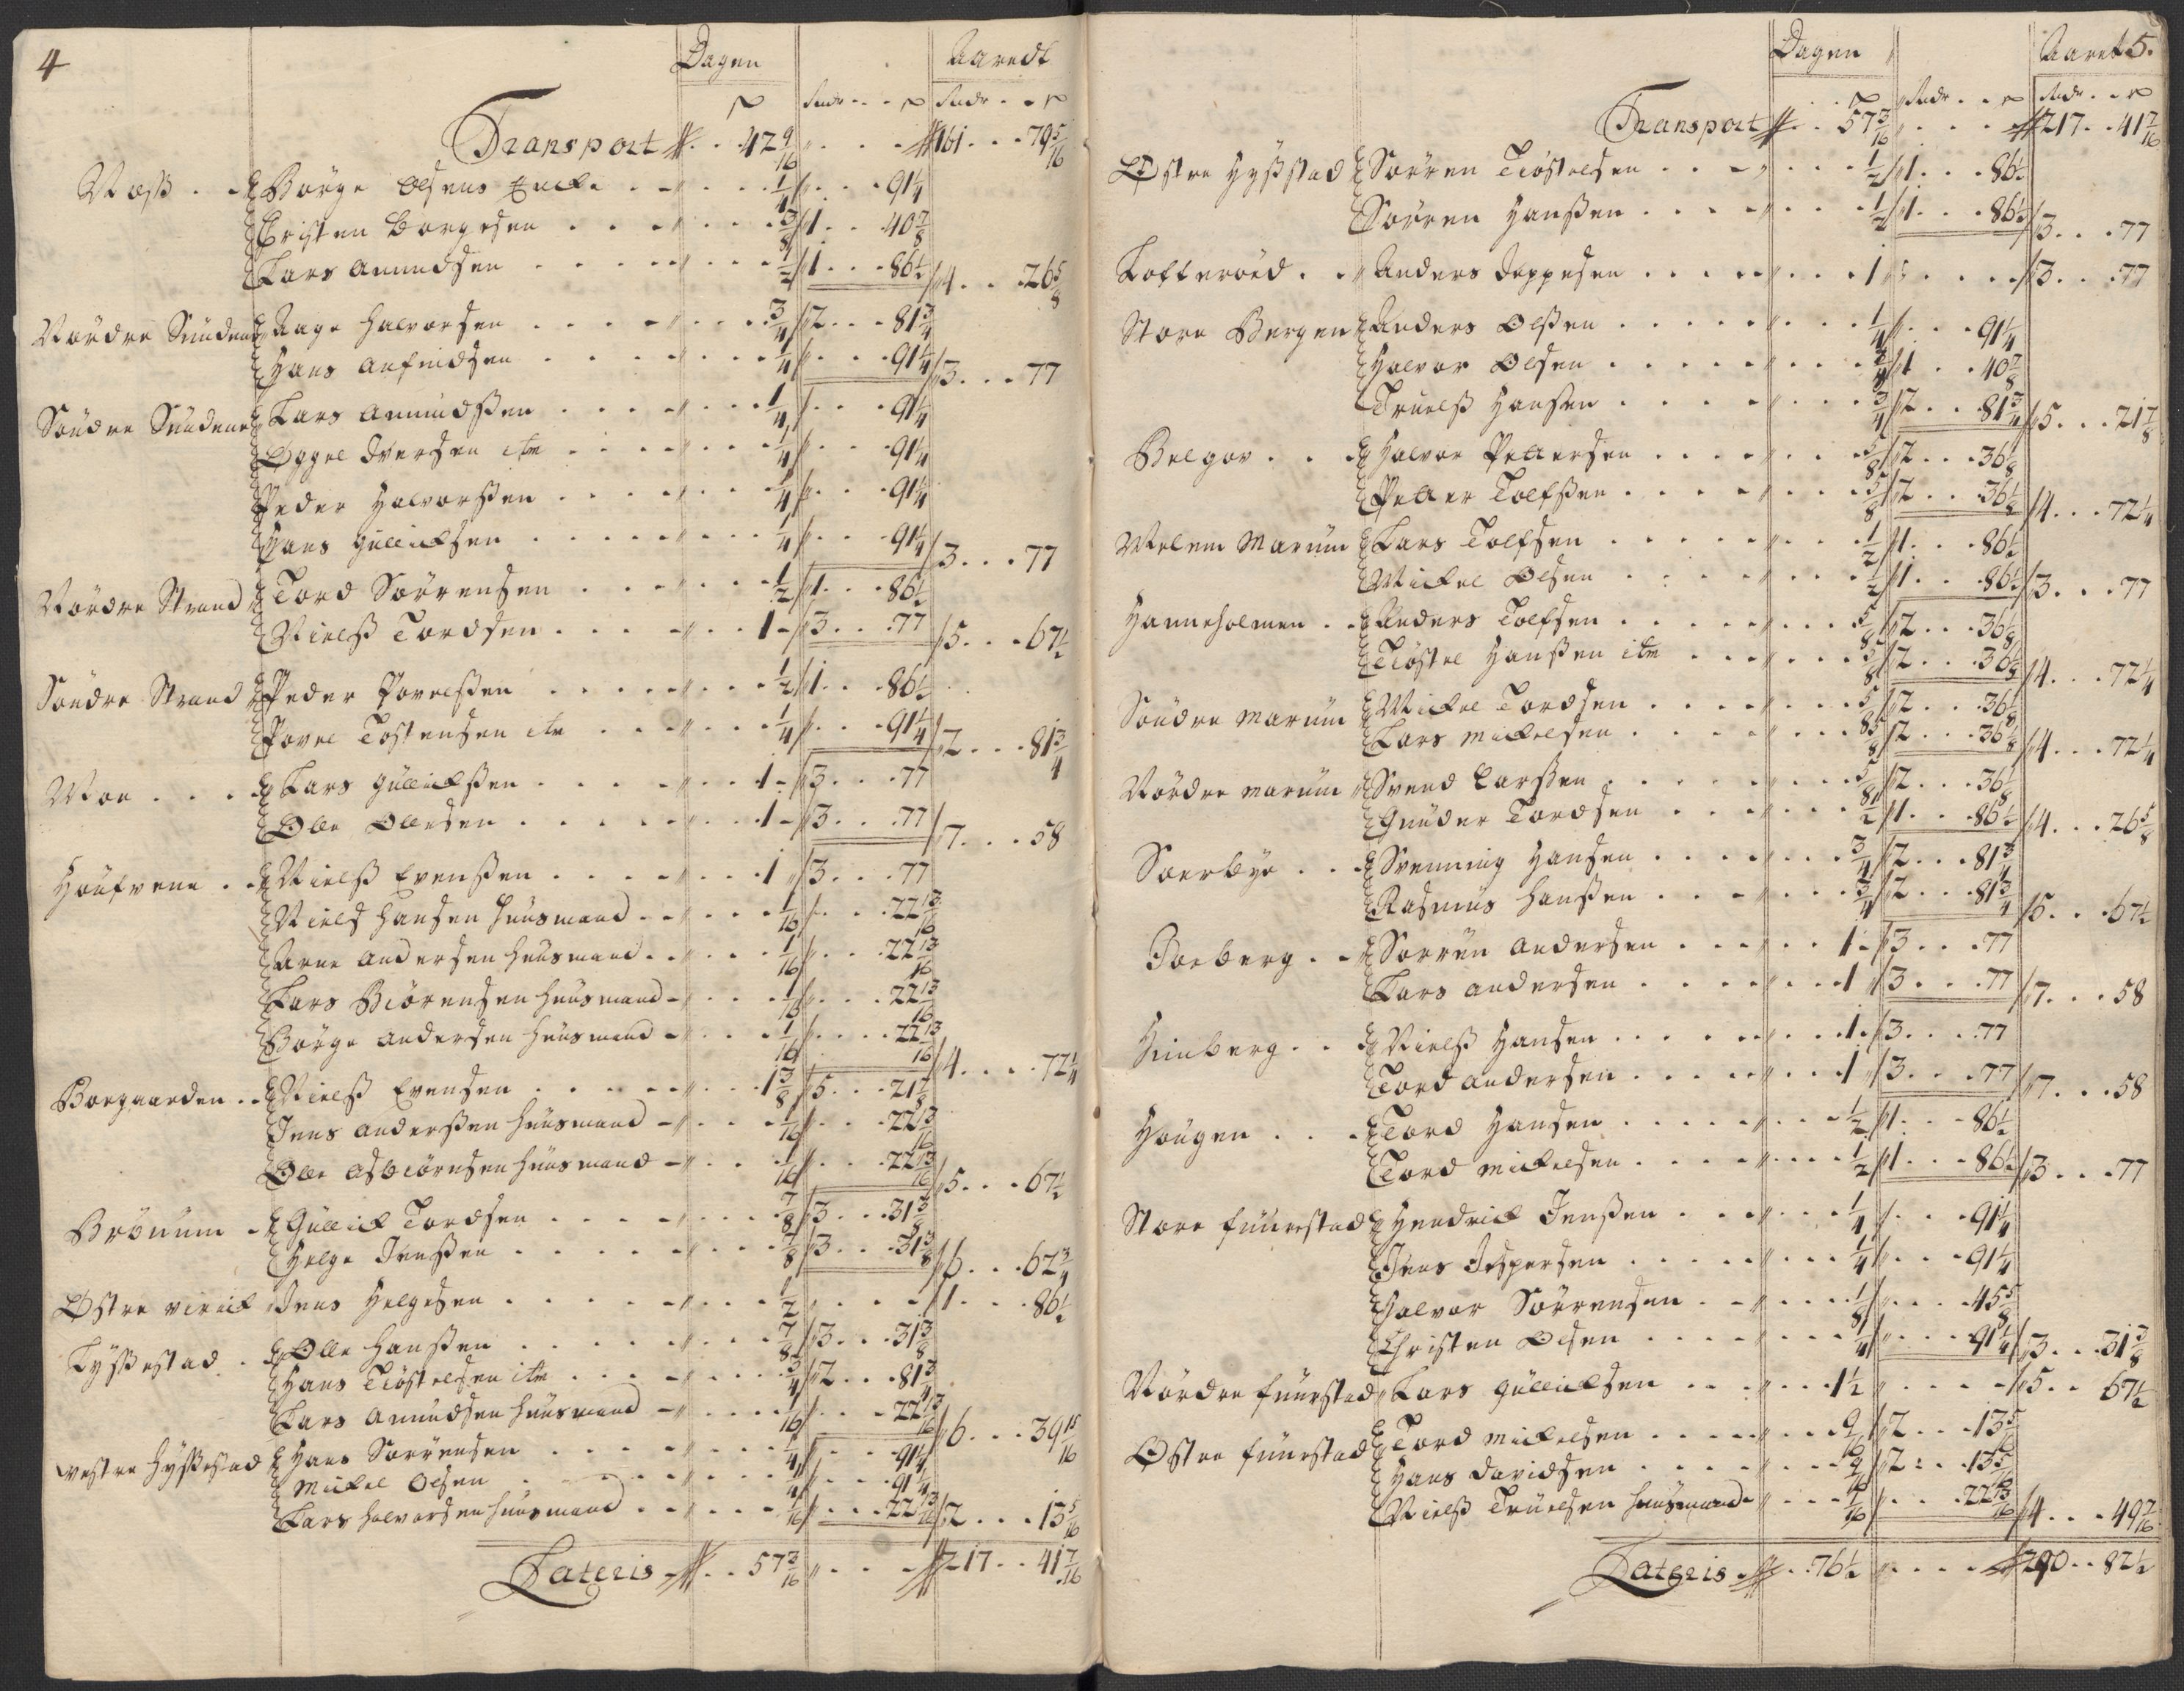 4
Dagen Aaredt
ß Rdr ß Rdr ß
Transport 42 9/16 161 79 5/16
Noß Börge Olsens Encke 1/4 91 1/4
Christen Borgesen 3/8 1 40 7/8
Lars Amundsen 1/2 1 86 1/2 4 26 5/8
Nordre Sundene Aage Halvorsen 3/4 2 81 3/4
Hans Anfindsen 1/4 91 1/4 3 77
Söndre Sundene Lars Amundßen 1/4 91 1/4
Iversen itm 1/4 91 1/4
Peder Halvorßen 1/4 91 1/4
Hans Gullichsen 1/4 91 1/4 3 77
Nordre Strand Tord Sörrensen 1/2 1 86 1/2
Nielß Tordsen 1 3 77 5 67 1/2
Söndre Strand Peder Povelßen 1/2 1 86 1/2
Povel Tostensen itm 1/4 91 1/4 2 81 3/4
Moe Lars Gullichßen 1 3 77
Olle Ollesen 1 3 77 7 58
Nielß Evenßen 1 3 77
Niels Hansen huusmand 1/16 22 13/16
Arne Andersen huusmand 1/16 22 13/16
Lars Biörensen huusmand 1/16 22 13/16
Börge Andersen huusmand 1/16 22 13/16 4 72 1/4
Borgaarden Nielß Evensen 1 3/8 5 21 7/8
Jens Anderßen huusmand 1/16 22 13/16
Olle Asbiörnsen huusmand 1/16 22 13/16 5 67 1/2
Brönum Gullich Tordsen 7/8 3 31 3/8
Helge Jenßen 7/8 3 31 3/8 6 62 3/4
Østre Virich Jens Helgesen 1/2 1 86 1/2
Tyßestad Olle Hanßen 7/8 3 31 3/8
Hans Tiöstelsen itm 3/4 2 81 3/4
Lars Amundsen huusmand 1/16 22 13/16 6 39 15/16
Vestre Hyßestad Hans Sörrensen 1/4 91 1/4
Mickel Olsen 1/4 91 1/4
Lars Halvorsen huusmand 1/16 22 13/16 2 13 5/16
Lateris 57 3/16 217 41 7/16
Dagen Aaret 5.
ß Rdr ß Rdr ß
Transport 57 3/16 217 41 7/16
Østre Hyßstad Sörren Tiöstelsen 1/2 1 86 1/2
Sörren Hanßen 1/2 1 86 1/2 3 77
Lofteröed Anders Jeppesen 1 3 77
Store Bergen Anders Olßen 1/4 91 1/4
Halvor Olsen 3/8 1 40 7/8
Truelß Hansen 3/4 2 81 3/4 5 21 7/8
Belgov Halvor Pettersen 5/8 2 36 1/8
Petter Tolfßen 5/8 2 36 1/8 4 72 1/4
Melem Marum Lars Tolfsen 1/2 1 86 1/2
Mickel Olsen 1/2 1 86 1/2 3 77
Hanneholmen Anders Tolfsen 5/8 2 36 1/8
Tiöstel Hanßen itm 5/8 2 36 1/8 4 72 1/4
Söndre Marum Mickel Tordsen 5/8 2 36 1/8
Lars Mickelsen 5/8 2 36 1/8 4 72 1/4
Nordre Marum Svend Larßen 5/8 2 36 1/8
Gunder Tordsen 1/2 1 86 1/2 4 26 5/8
Soerbye Svenning Hansen 3/4 2 81 3/4
Rasmus Hanßen 3/4 2 81 3/4 5 67 1/2
Joeberg Sörren Andersen 1 3 77
Lars Andersen 1 3 77 7 58
Himberg Nielß Hansen 1 3 77
Tord Andersen 1 3 77 7 58
Hougen Tord Hansen 1/2 1 86 1/2
Tord Mickelsen 1/2 1 86 1/2 3 77
Store Fuurestad Hendrich Jenßen 1/4 91 1/4
Jens Jespersen 1/4 91 1/4
Halvor Sörrensen 1/8 45 5/8
Christen Olsen 1/4 91 1/4 3 31 3/8
Nordre Fuurstad Lars Gullichsen 1 1/2 5 67 1/2
Østre Fuurstad Tord Mickelsen 9/16 2 13 5/16
Hans Davidsen 9/16 2 13 5/16
Nielß Truelsen huusmand 1/16 22 13/16 4 49 7/16
Lateris 76 1/2 290 82 1/2